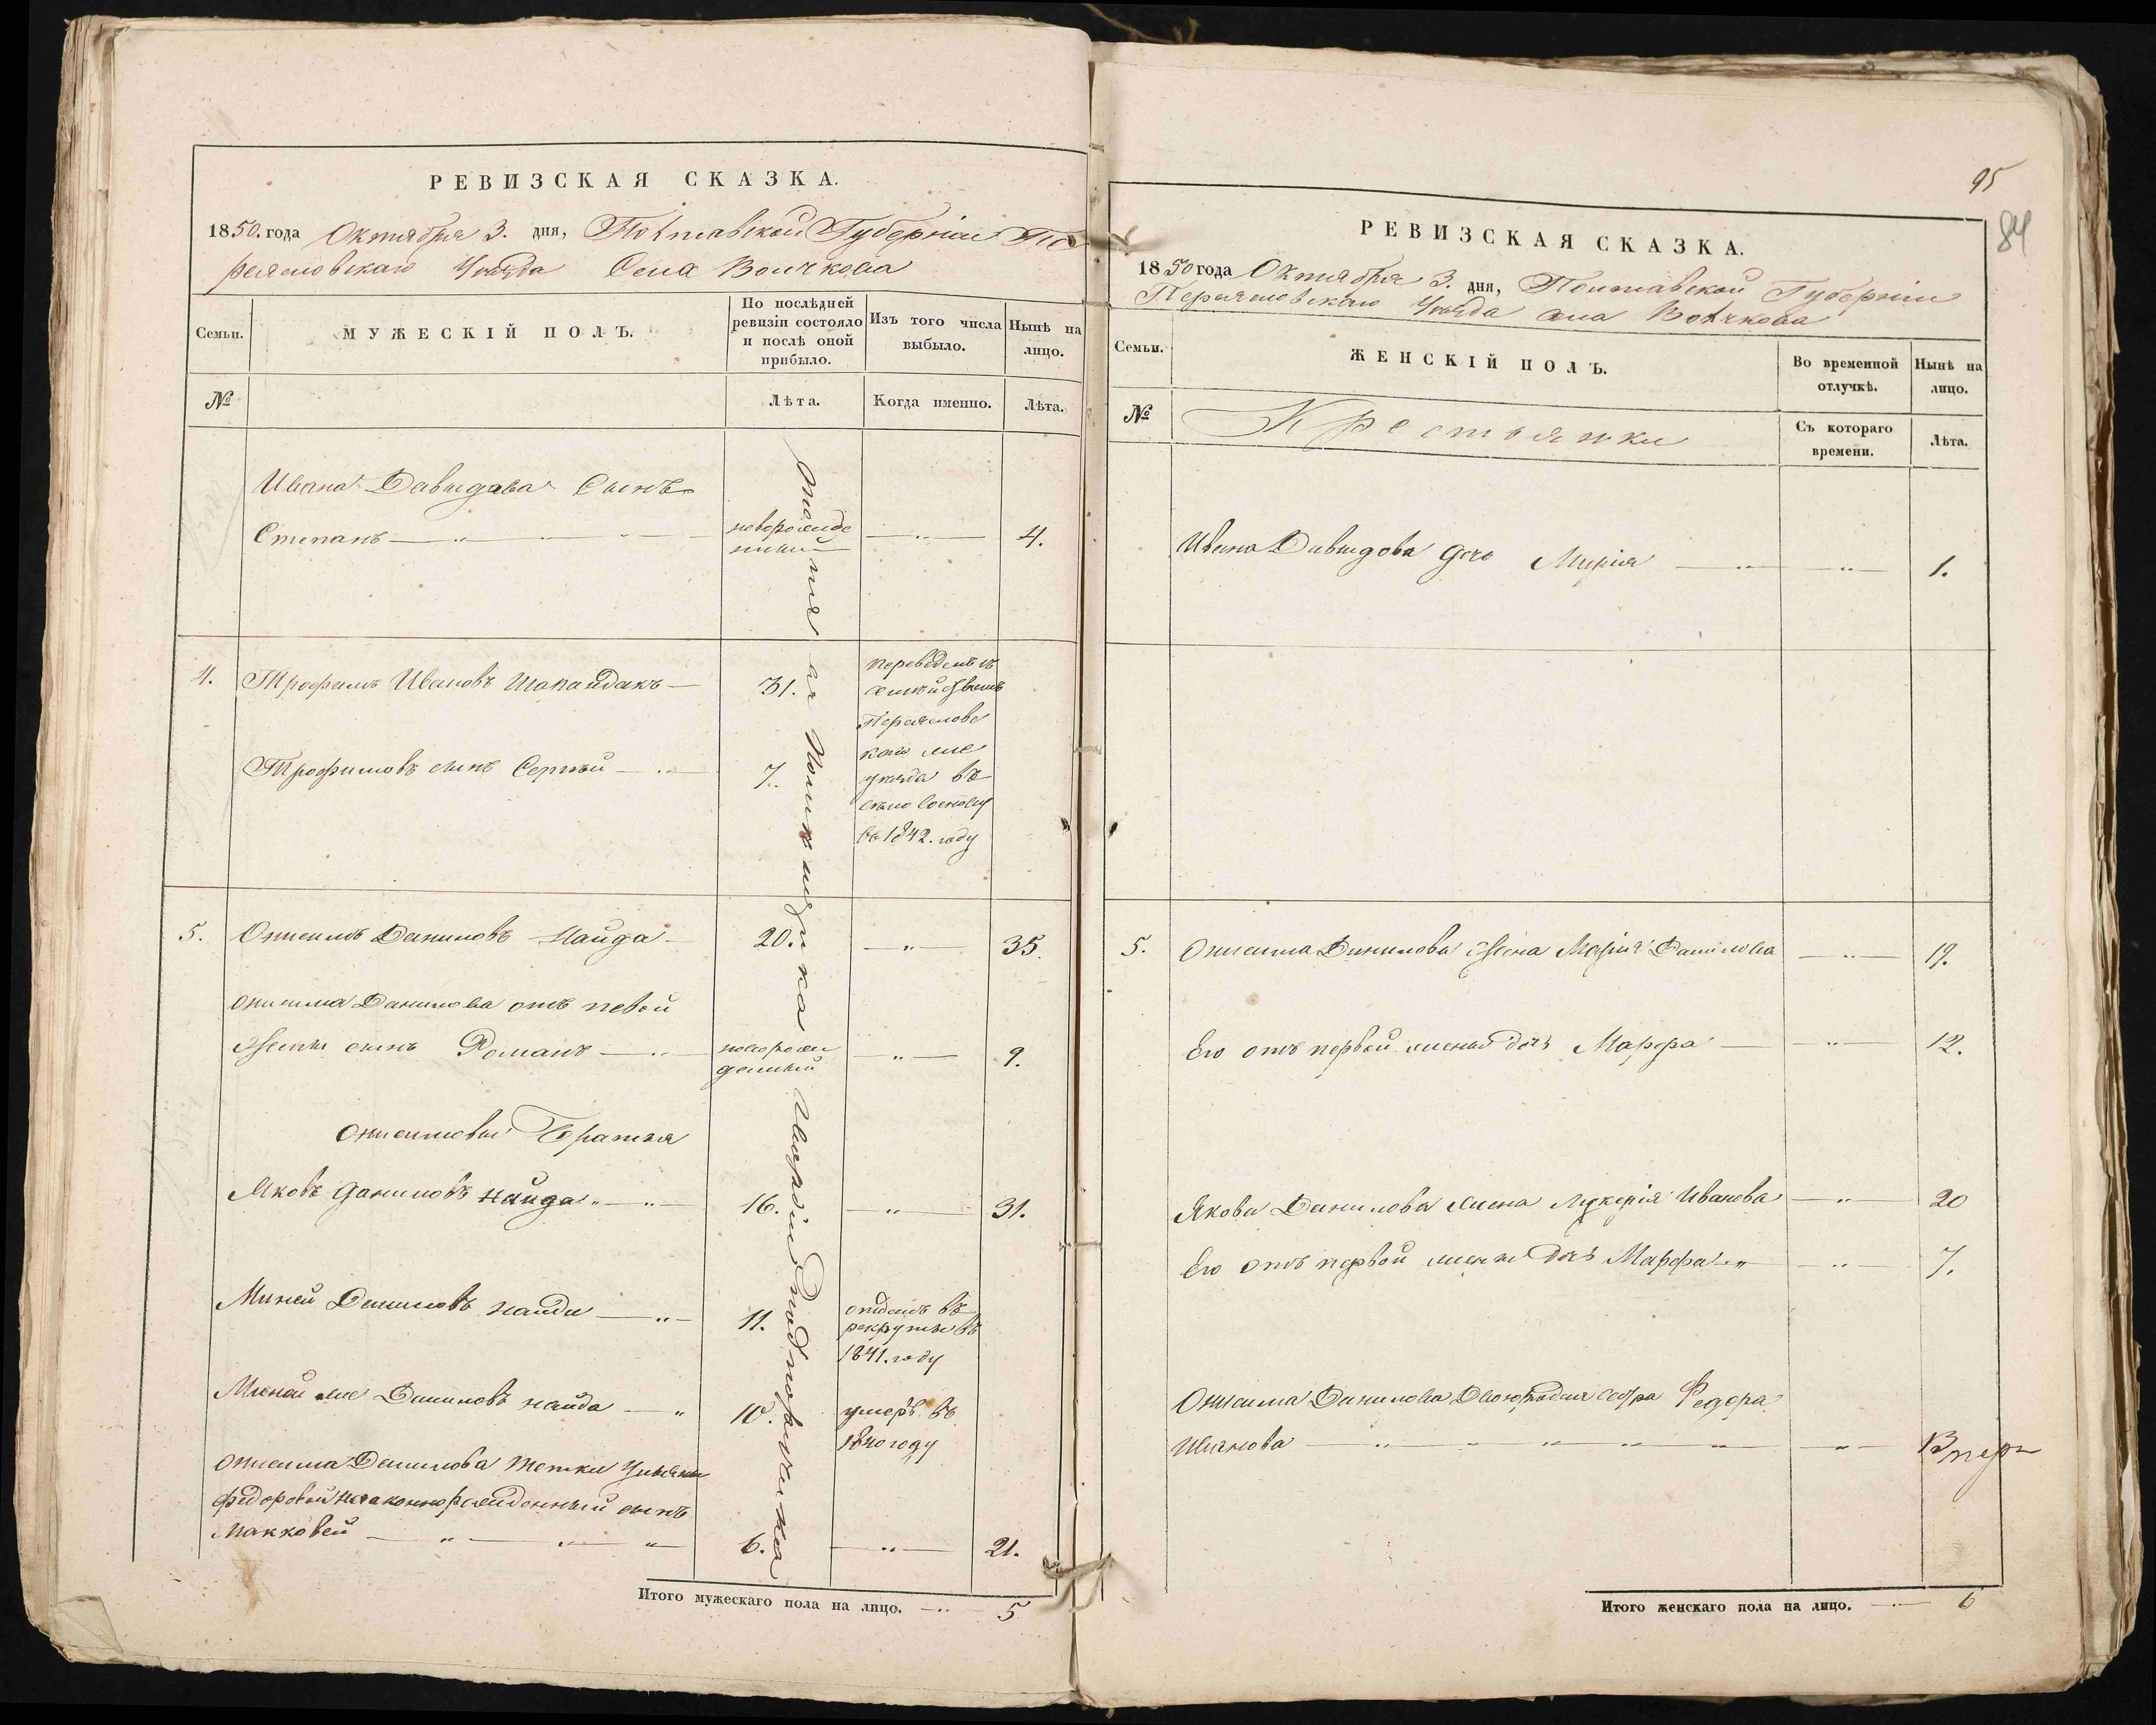 РЕВИЗСКАЯ СКАЗКА.
1850. года Октября 3. дня, Полтавской Губерніи Пе
реяславскаго Уѣзда Села Волчкова
Семьи.
МУЖЕСКІЙ ПОЛЪ.
По послѣдней ревизіи состояло и послѣ оной прибыло.
Изъ того числа выбыло.
Нынѣ на лицо.
№
Лѣта.
Когда именно.
Лѣта.
Ивана Давидова Сынъ
Степанъ новорожде нный 4.
4. Трофимъ Ивановъ 31.
переведенъ съ
Переяслов
скаго же
уѣзда въ
село
въ 1842. году
Трофимовъ сынъ Сергѣй 7.
5. Онисимъ Даниловъ Найда 20. 35.
Онисима Данилова отъ певой
Жены сынъ Романъ новорож денный 9.
Онисимовы Братья
Яковъ Даниловъ Найда 16. 31.
Миней Даниловъ Найда 11. отданъ въ
рекруты въ
1841. году
Миней же Даниловъ Найда 10. умеръ въ
1840 году
Онисима Данилова тетки Ульяны
Федоровой незаконнорожденный сынъ
Макковей 6. 21.
Итого мужескаго пола на лицо. 5
подпоручика
95
84
РЕВИЗСКАЯ СКАЗКА.
1850 года Октября 3. дня, Полтавской Губерніи
Переяславскаго Уѣзда села Волчкова
Семьи.
ЖЕНСКІЙ ПОЛЪ.
Во временной отлучкѣ.
Нынѣ на лицо.
№
Крестьянки
Съ котораго времени.
Лѣта.
Ивана Давидова дочь Марія 1.
5. Онисима Данилова Жена Марія Данилова 19.
Его отъ первой жены дочь Марфа 12.
Якова Данилова жена Лукерія Иванова 20
Его отъ первой жены дочь Марфа 7.
Онисима Данилова Двоюродная Сестра Федора
13
Итого женскаго пола на лицо. 6